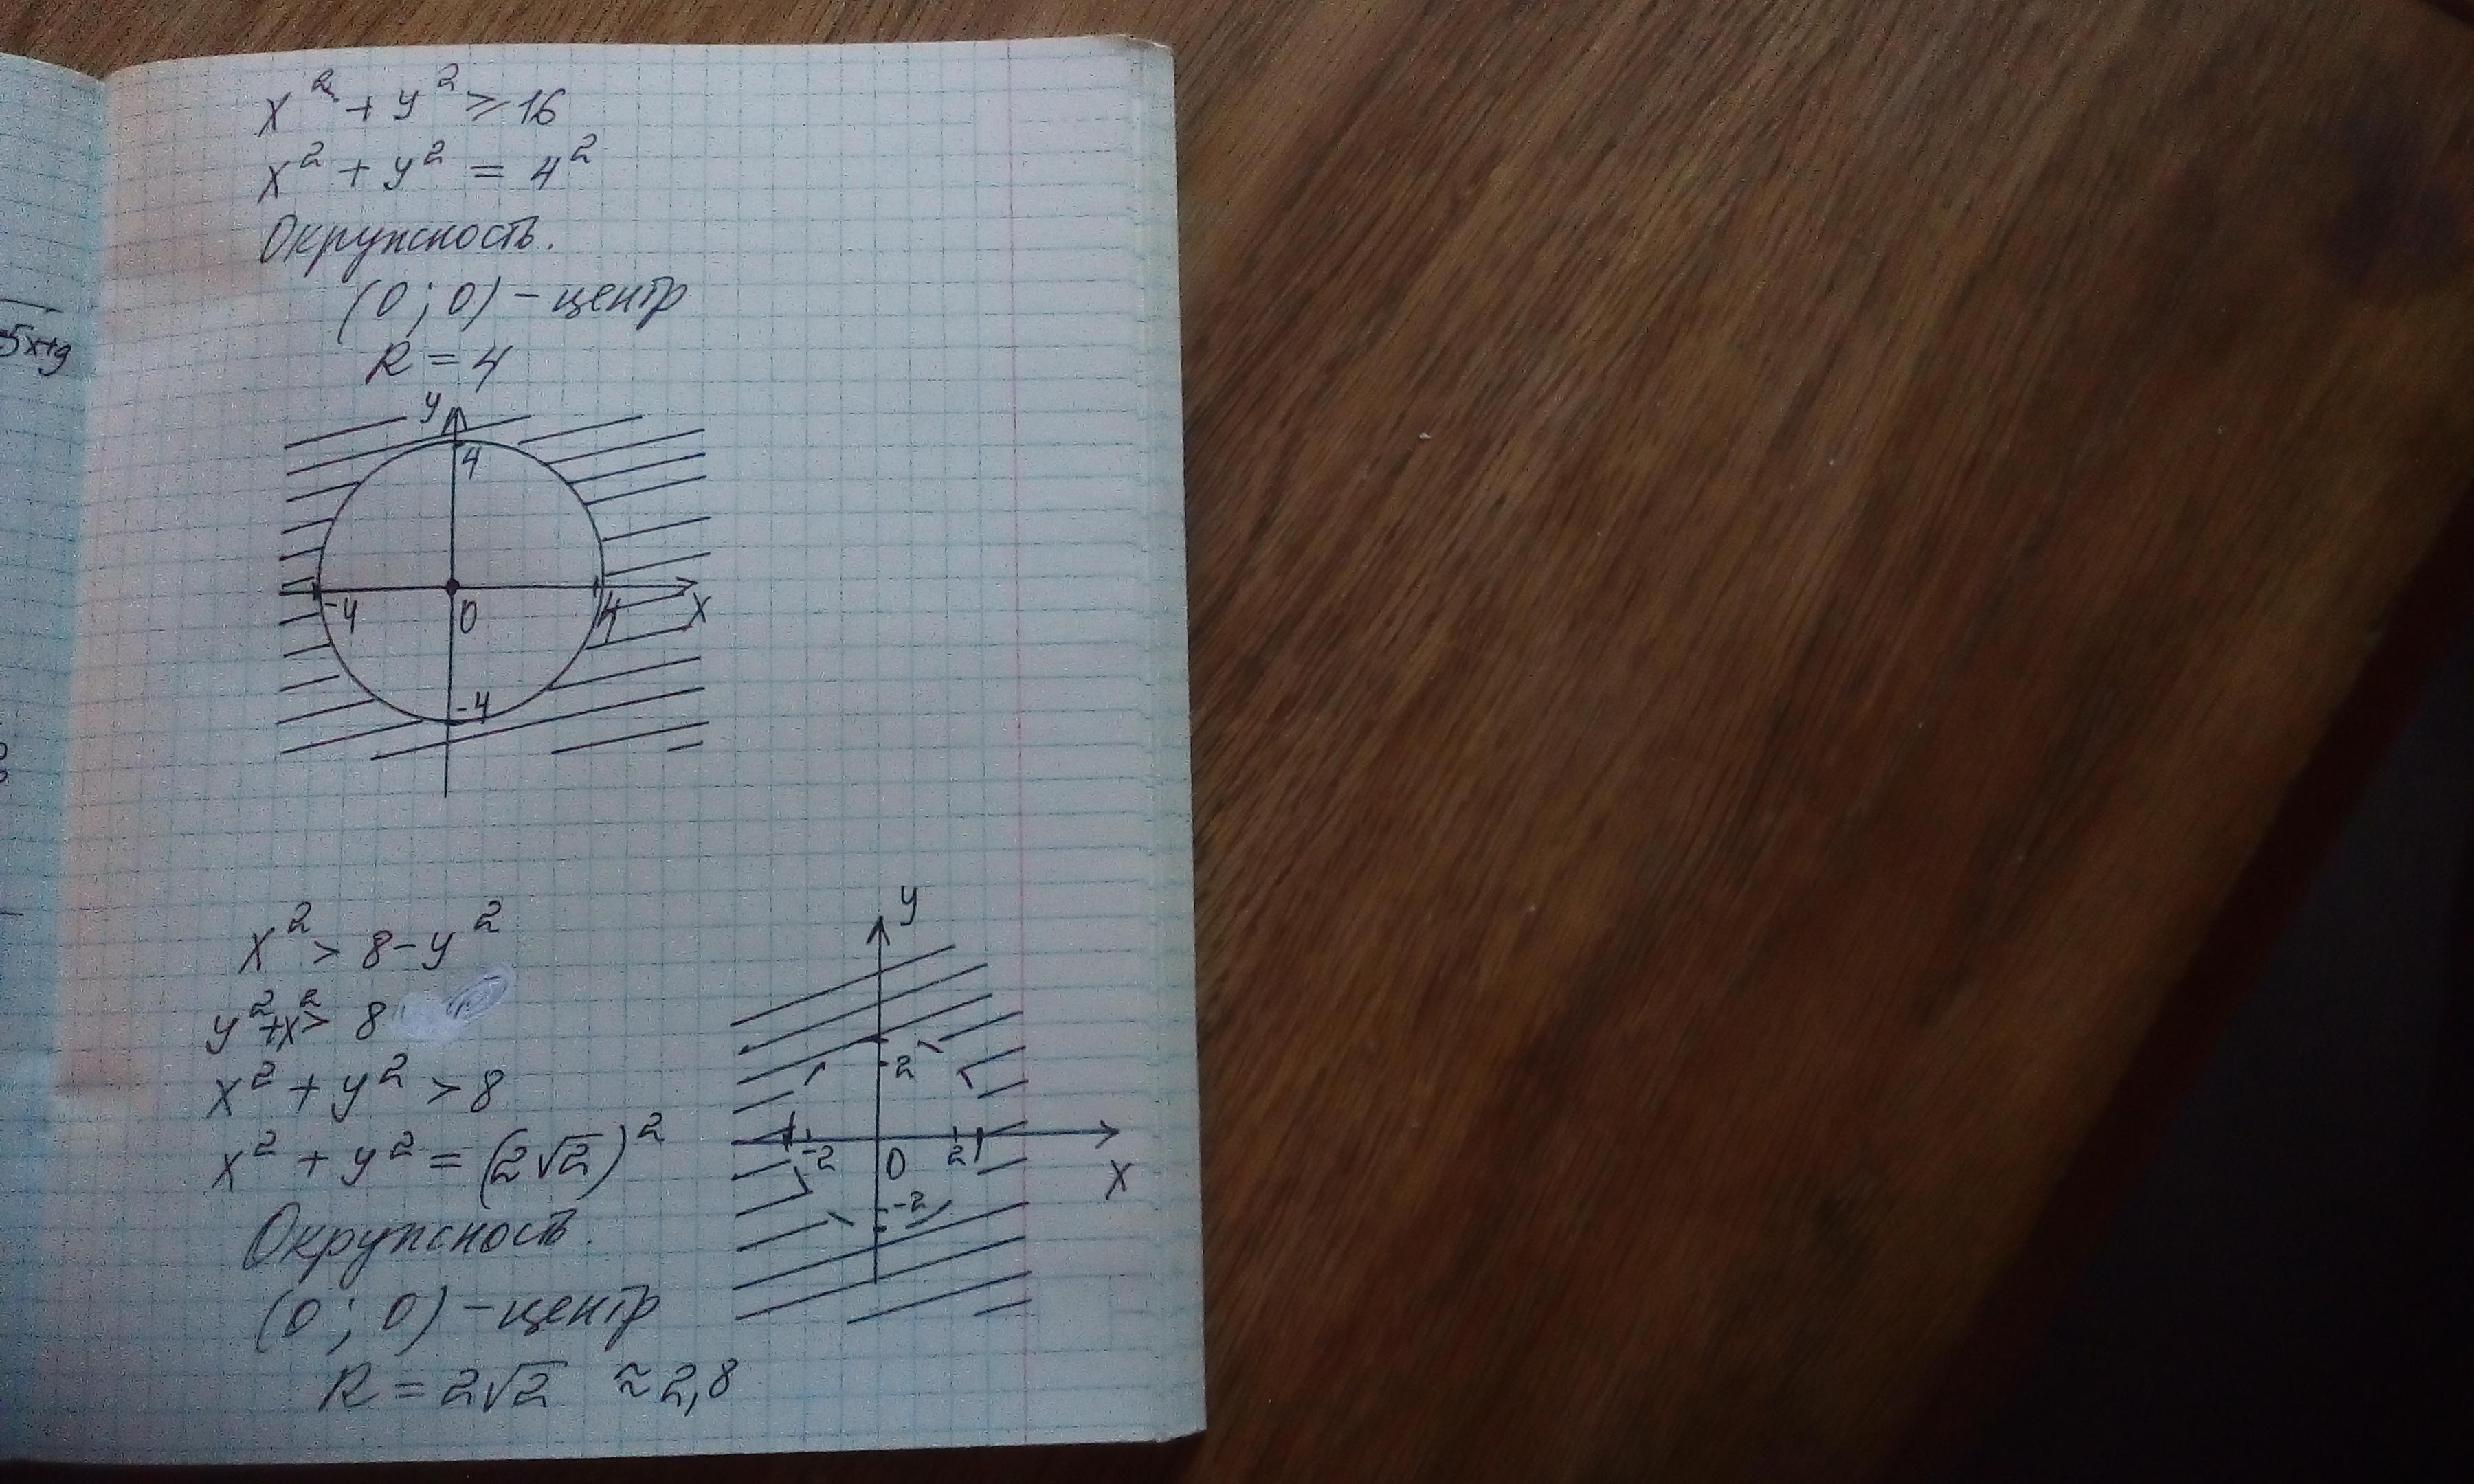 x² + y² ≥ 16
x² + y² = 4²
Окружность.
(0 ; 0) – центр
R = 4
y
4
-4 0 4 x
-4
x² > 8 – y²
y²+x² > 8
x² + y² > 8
x² + y² = (2√2)²
Окружность.
(0 ; 0) – центр
R = 2√2 ≈ 2,8
y
2
-2 0 2 x
-2
-5x+9